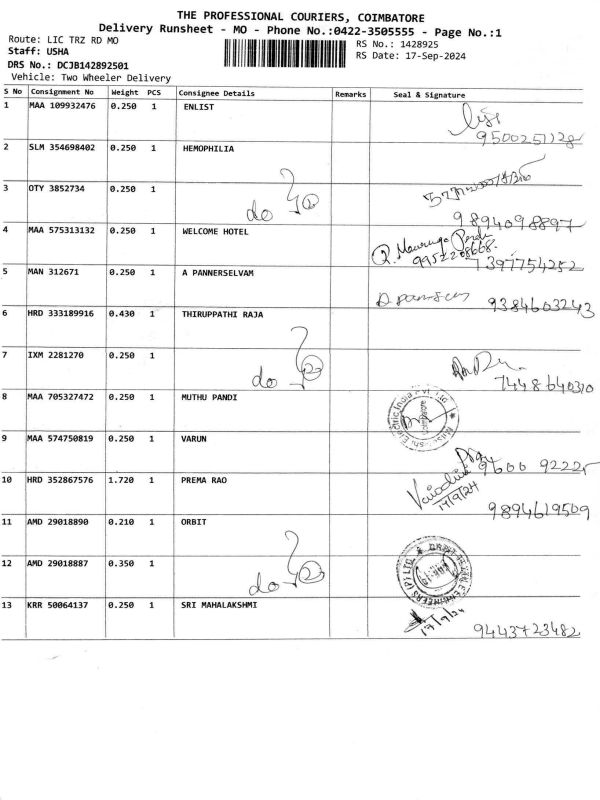 THE PROFESSIONAL COURIERS, COIMBATORE
Delivery Runsheet - MO - Phone No.:0422-3505555 - Page No.:1
Route: LIC TRZ RD MO
RS No.: 1428925
Staff: USHA
RS Date: 17-Sep-2024
DRS No.: DCJB142892501
Vehicle: Two Wheeler Delivery
S No Consignment No Weight PCS Consignee Details Remarks Seal & Signature
1 MAA 109932476 0.250 1 ENLIST
9500251128
2 SLM 354698402 0.250 1 HEMOPHILIA
3 OTY 3852734 0.250 1
do 2
9894098897
4 MAA 575313132 0.250 1 WELCOME HOTEL
9952208668.
7397754252
5 MAN 312671 0.250 1 A PANNERSELVAM
9384603243
6 HRD 333189916 0.430 1 THIRUPPATHI RAJA
7 IXM 2281270 0.250 1
do 2
7448640310
8 MAA 705327472 0.250 1 MUTHU PANDI
9 MAA 574750819 0.250 1 VARUN
9600 92225
10 HRD 352867576 1.720 1 PREMA RAO
17/9/24
9894619509
11 AMD 29018890 0.210 1 ORBIT
12 AMD 29018887 0.350 1
do 2
13 KRR 50064137 0.250 1 SRI MAHALAKSHMI
17/9/24
9443723482